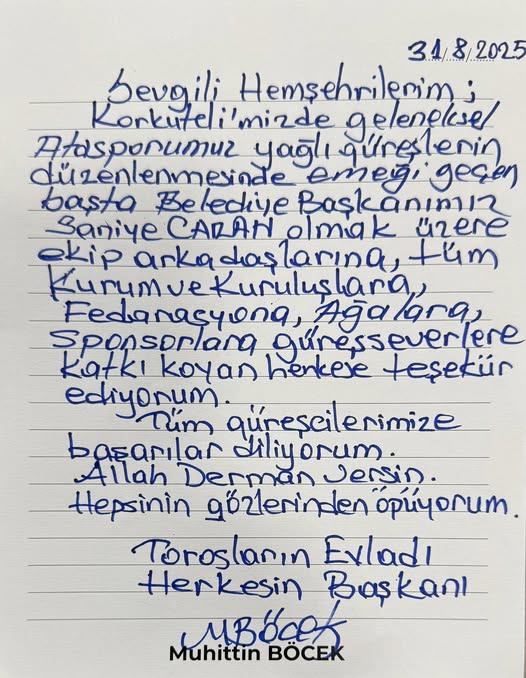 31/8/2025
Sevgili Hemşehrilerim;
Korkuteli'mizde geleneksel
Atasporumuz yağlı güreşlerin
düzenlenmesinde emeği geçen
başta Belediye Başkanımız
Saniye CARAN olmak üzere
ekip arkadaşlarına, tüm
Kurum ve Kuruluşlara,
Fedarasyona, Ağalara,
Sponsorlara güreşseverlere
Katkı koyan herkese teşekür
ediyorum.
Tüm güreşcilerimize
başarılar diliyorum.
Allah Derman versin.
Hepsinin gözlerinden öpüyorum.
Torosların Evladı
Herkesin Başkanı
MBÖCEK
Muhittin BÖCEK